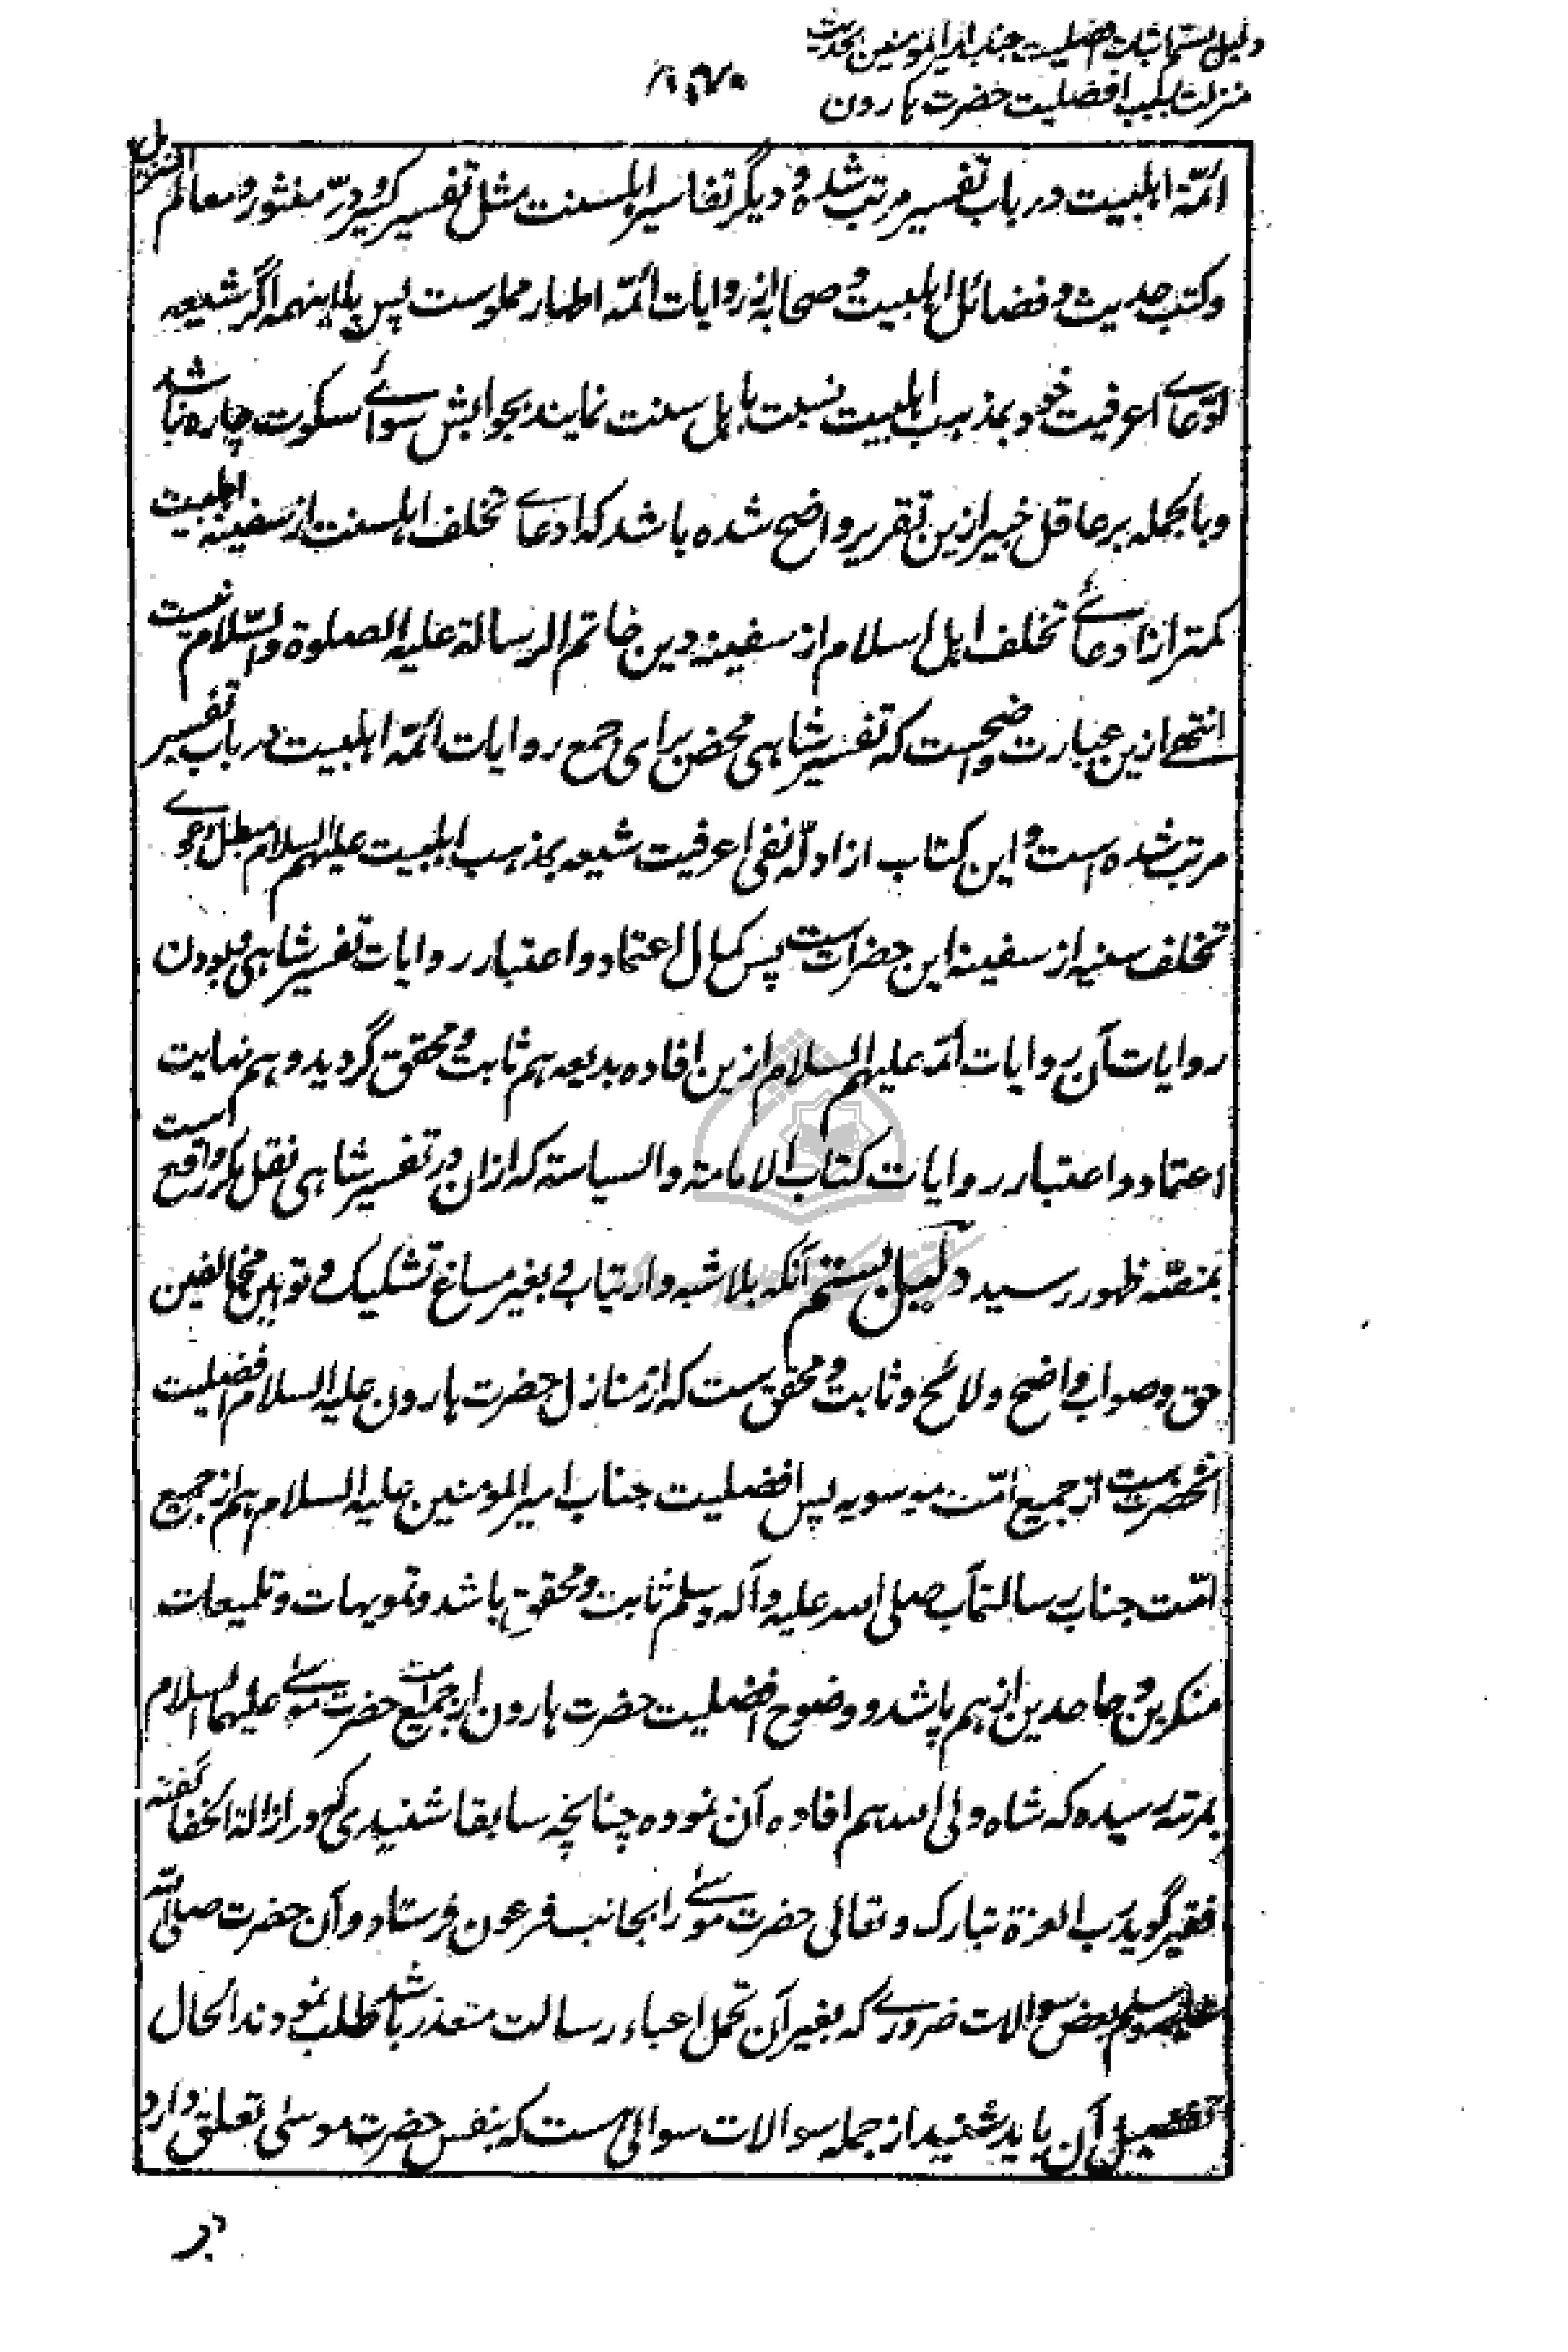 دلیل بستم اثبات افضلیت جناب امیر المومنین بحدیث
منزلت بسبب افضلیت حضرت هارون
ائمّهٔ اهلبیت در باب تفسیر مرتب شده و دیگر تفاسیر اهلسنت مثل تفسیر کبیر و درّ منثور و معالم التنزیل
و کتب حدیث و فضائل اهلبیت و صحابه از روایات ائمّهٔ اطهار مملوست پس با اینهمه اگر شیعه
ادّعاے اعرفیت خود بمذهب اهلبیت نسبت باهل سنت نمایند بجوابش سواے سکوت چاره نباشد
و بالجمله بر عاقل خبیر ازین تقریر واضح شده باشد که ادعاے تخلف اهلسنت از سفینهٔ اهلبیت
کمتر از ادعاے تخلف اهل اسلام از سفینهٔ دین خاتم الرسالة علیه الصلوة والسّلام نیست
انتهے ازین عبارت واضحست که تفسیر شاهی محض برای جمع روایات ائمّهٔ اهلبیت در باب تفسیر
مرتب شده است و این کتاب از ادلّهٔ نفی اعرفیت شیعه بمذهب اهلبیت علیهم السلام و مبطل دعوے
تخلف سنیه از سفینهٔ این حضرات ست پس کمال اعتماد و اعتبار روایات تفسیر شاهی و بودن
روایات آن روایات ائمّه علیهم السلام ازین افادهٔ بدیعه هم ثابت و محقق گردید و هم نهایت
اعتماد و اعتبار روایات کتاب الامامة والسیاسة که ازان در تفسیر شاهی نقل کرده واقع است
بمنصّهٔ ظهور رسید دلیل بستم آنکه بلا شبه و ارتیاب و بغیر مساغ تشکیک و توهین مخالفین
حق و صواب واضح و لائح و ثابت و محقق ست که از منازل حضرت هارون علیه السلام افضلیت
آنحضرت ست از جمیع امّت موسویه پس افضلیت جناب امیر المومنین علیه السلام هم از جمیع
امّت جناب رسالتمآب صلی الله علیه وآله وسلم ثابت و محقق باشد و تمویهات و تلمیعات
منکرین و جاحدین از هم پاشد و وضوح افضلیت حضرت هارون از جمیع امت حضرت موسے علیهما السلام
بمرتبه رسیده که شاه ولی الله هم افاده آن نموده چنانچه سابقا شنیدی که در ازالة الخفا گفته
فقیر گوید رب العزة تبارک و تعالی حضرت موسے را بجانب فرعون فرستاد و آن حضرت صلی الله
علیه وسلم بعض سوالات ضرورے که بغیر آن تحمل اعباء رسالت متعذر باشد طلب نمودند الحال
تفصیل آن باید شنید از جمله سوالات سوالی ست که بنفس حضرت موسی تعلق دارد